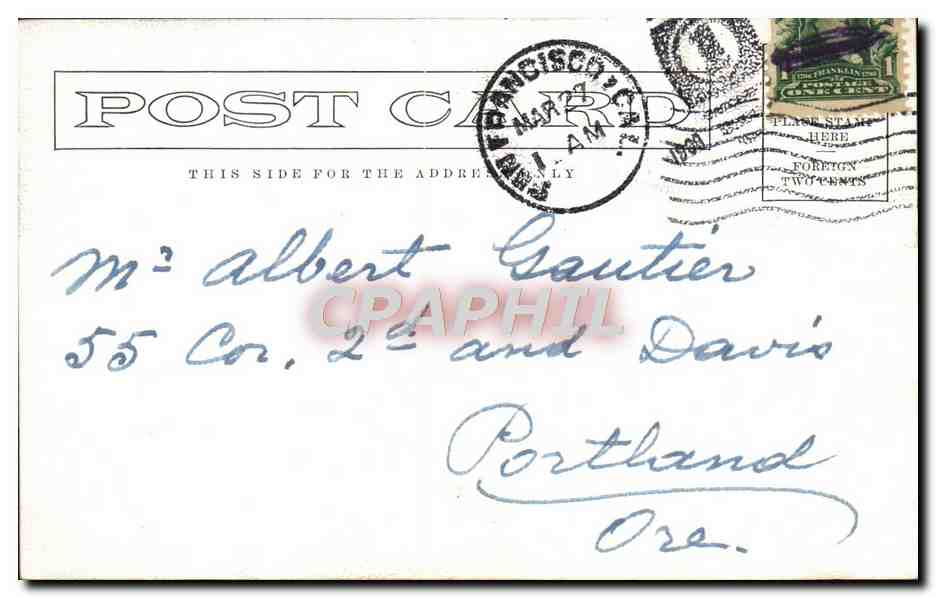 POST CARD
THIS SIDE FOR THE ADDRESS ONLY
SAN FRANCISCO, CAL.
MAR 27
1 AM
1 1706 FRANKLIN 1790 1
POSTAGE
ONE CENT
PLACE STAMP
HERE
FOREIGN
TWO CENTS
Mr Albert Gautier
CPAPHIL
55 Cor. 2d and Davis
Portland
Ore.